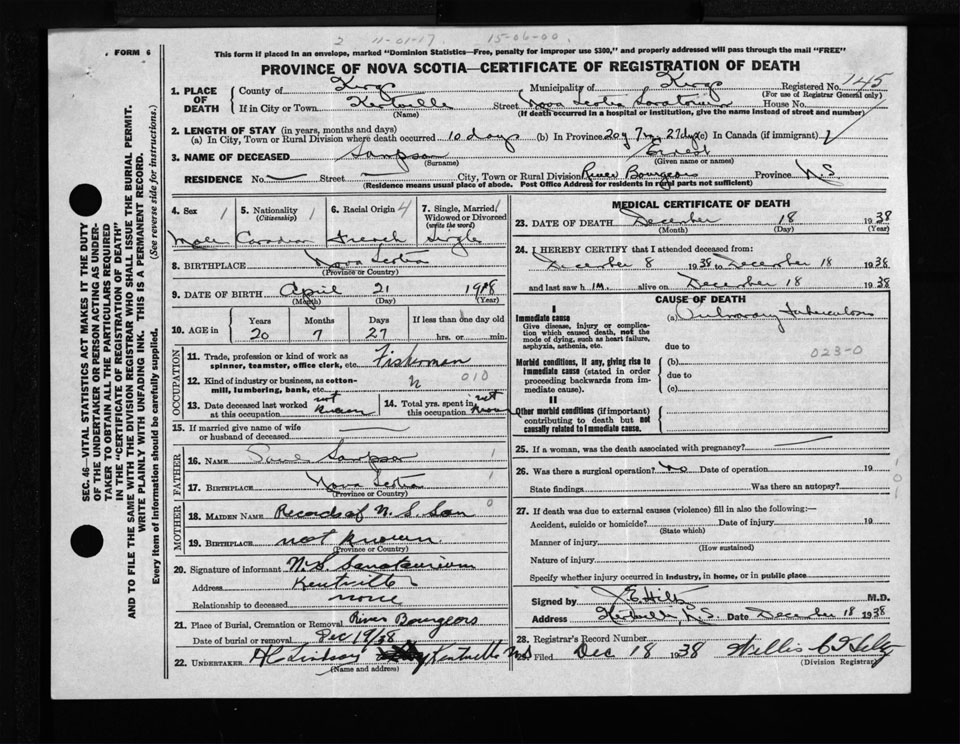 2 4-01-17 15-06-00.
FORM 6
This form if placed in an envelope, marked "Dominion Statistics—Free, penalty for improper use $300," and properly addressed will pass through the mail "FREE"
PROVINCE OF NOVA SCOTIA—CERTIFICATE OF REGISTRATION OF DEATH
1. PLACE OF DEATH
County of Kings Municipality of Kings Registered No. 145
(For use of Registrar General only)
If in City or Town Kentville Street Nova Scotia Sanatorium House No.
(Name) (If death occurred in a hospital or institution, give the name instead of street and number)
2. LENGTH OF STAY (in years, months and days)
(a) In City, Town or Rural Division where death occurred 10 days (b) In Province 20y 7m 27dys (c) In Canada (if immigrant)
3. NAME OF DECEASED Sampson Ernest
(Surname) (Given name or names)
RESIDENCE No. — Street — City, Town or Rural Division River Bourgeois Province N.S
(Residence means usual place of abode. Post Office Address for residents in rural parts not sufficient)
4. Sex 1 5. Nationality (Citizenship) 1 6. Racial Origin 4 7. Single, Married, Widowed or Divorced (write the word) 1
Male Canadian French Single
8. BIRTHPLACE Nova Scotia
(Province or Country)
9. DATE OF BIRTH April 21 1918
(Month) (Day) (Year)
10. AGE in Years Months Days If less than one day old
20 7 27 hrs. or min.
OCCUPATION
11. Trade, profession or kind of work as spinner, teamster, office clerk, etc. Fisherman
12. Kind of industry or business, as cotton-mill, lumbering, bank, etc. " 010
13. Date deceased last worked at this occupation not known
14. Total yrs. spent in this occupation not known
15. If married give name of wife or husband of deceased —
FATHER
16. NAME Sampson 1
17. BIRTHPLACE Nova Scotia 1
(Province or Country)
MOTHER
18. MAIDEN NAME Records of N. S. San 0
19. BIRTHPLACE not known
(Province or Country)
20. Signature of informant N.S. Sanatorium
Address Kentville
Relationship to deceased none
21. Place of Burial, Cremation or Removal River Bourgeois
Date of burial or removal Dec 19/38
22. UNDERTAKER Lindsay Kentville N.S.
(Name and address)
MEDICAL CERTIFICATE OF DEATH
23. DATE OF DEATH December 18 1938
(Month) (Day) (Year)
24. I HEREBY CERTIFY that I attended deceased from:
December 8 1938 to December 18 1938
and last saw h im alive on December 18 1938
CAUSE OF DEATH
I
Immediate cause
Give disease, injury or complication which caused death, not the mode of dying, such as heart failure, asphyxia, asthenia, etc.
(a) Pulmonary Tuberculosis
due to
023-0
Morbid conditions, if any, giving rise to immediate cause (stated in order proceeding backwards from immediate cause).
(b)
due to
(c)
II
Other morbid conditions (if important) contributing to death but not causally related to immediate cause.
25. If a woman, was the death associated with pregnancy? —
26. Was there a surgical operation? no Date of operation 19
State findings Was there an autopsy?
27. If death was due to external causes (violence) fill in also the following:—
Accident, suicide or homicide? Date of injury 19
(State which)
Manner of injury
(How sustained)
Nature of injury
Specify whether injury occurred in industry, in home, or in public place
Signed by J E Hiltz M.D.
Address Kentville, N.S. Date December 18 1938
28. Registrar's Record Number
29. Filed Dec 18 1938 Willis
(Division Registrar)
SEC. 46—VITAL STATISTICS ACT MAKES IT THE DUTY
OF THE UNDERTAKER OR PERSON ACTING AS UNDER-
TAKER TO OBTAIN ALL THE PARTICULARS REQUIRED
IN THE "CERTIFICATE OF REGISTRATION OF DEATH"
AND TO FILE THE SAME WITH THE DIVISION REGISTRAR WHO SHALL ISSUE THE BURIAL PERMIT.
WRITE PLAINLY WITH UNFADING INK. THIS IS A PERMANENT RECORD.
Every item of information should be carefully supplied. (See reverse side for instructions.)